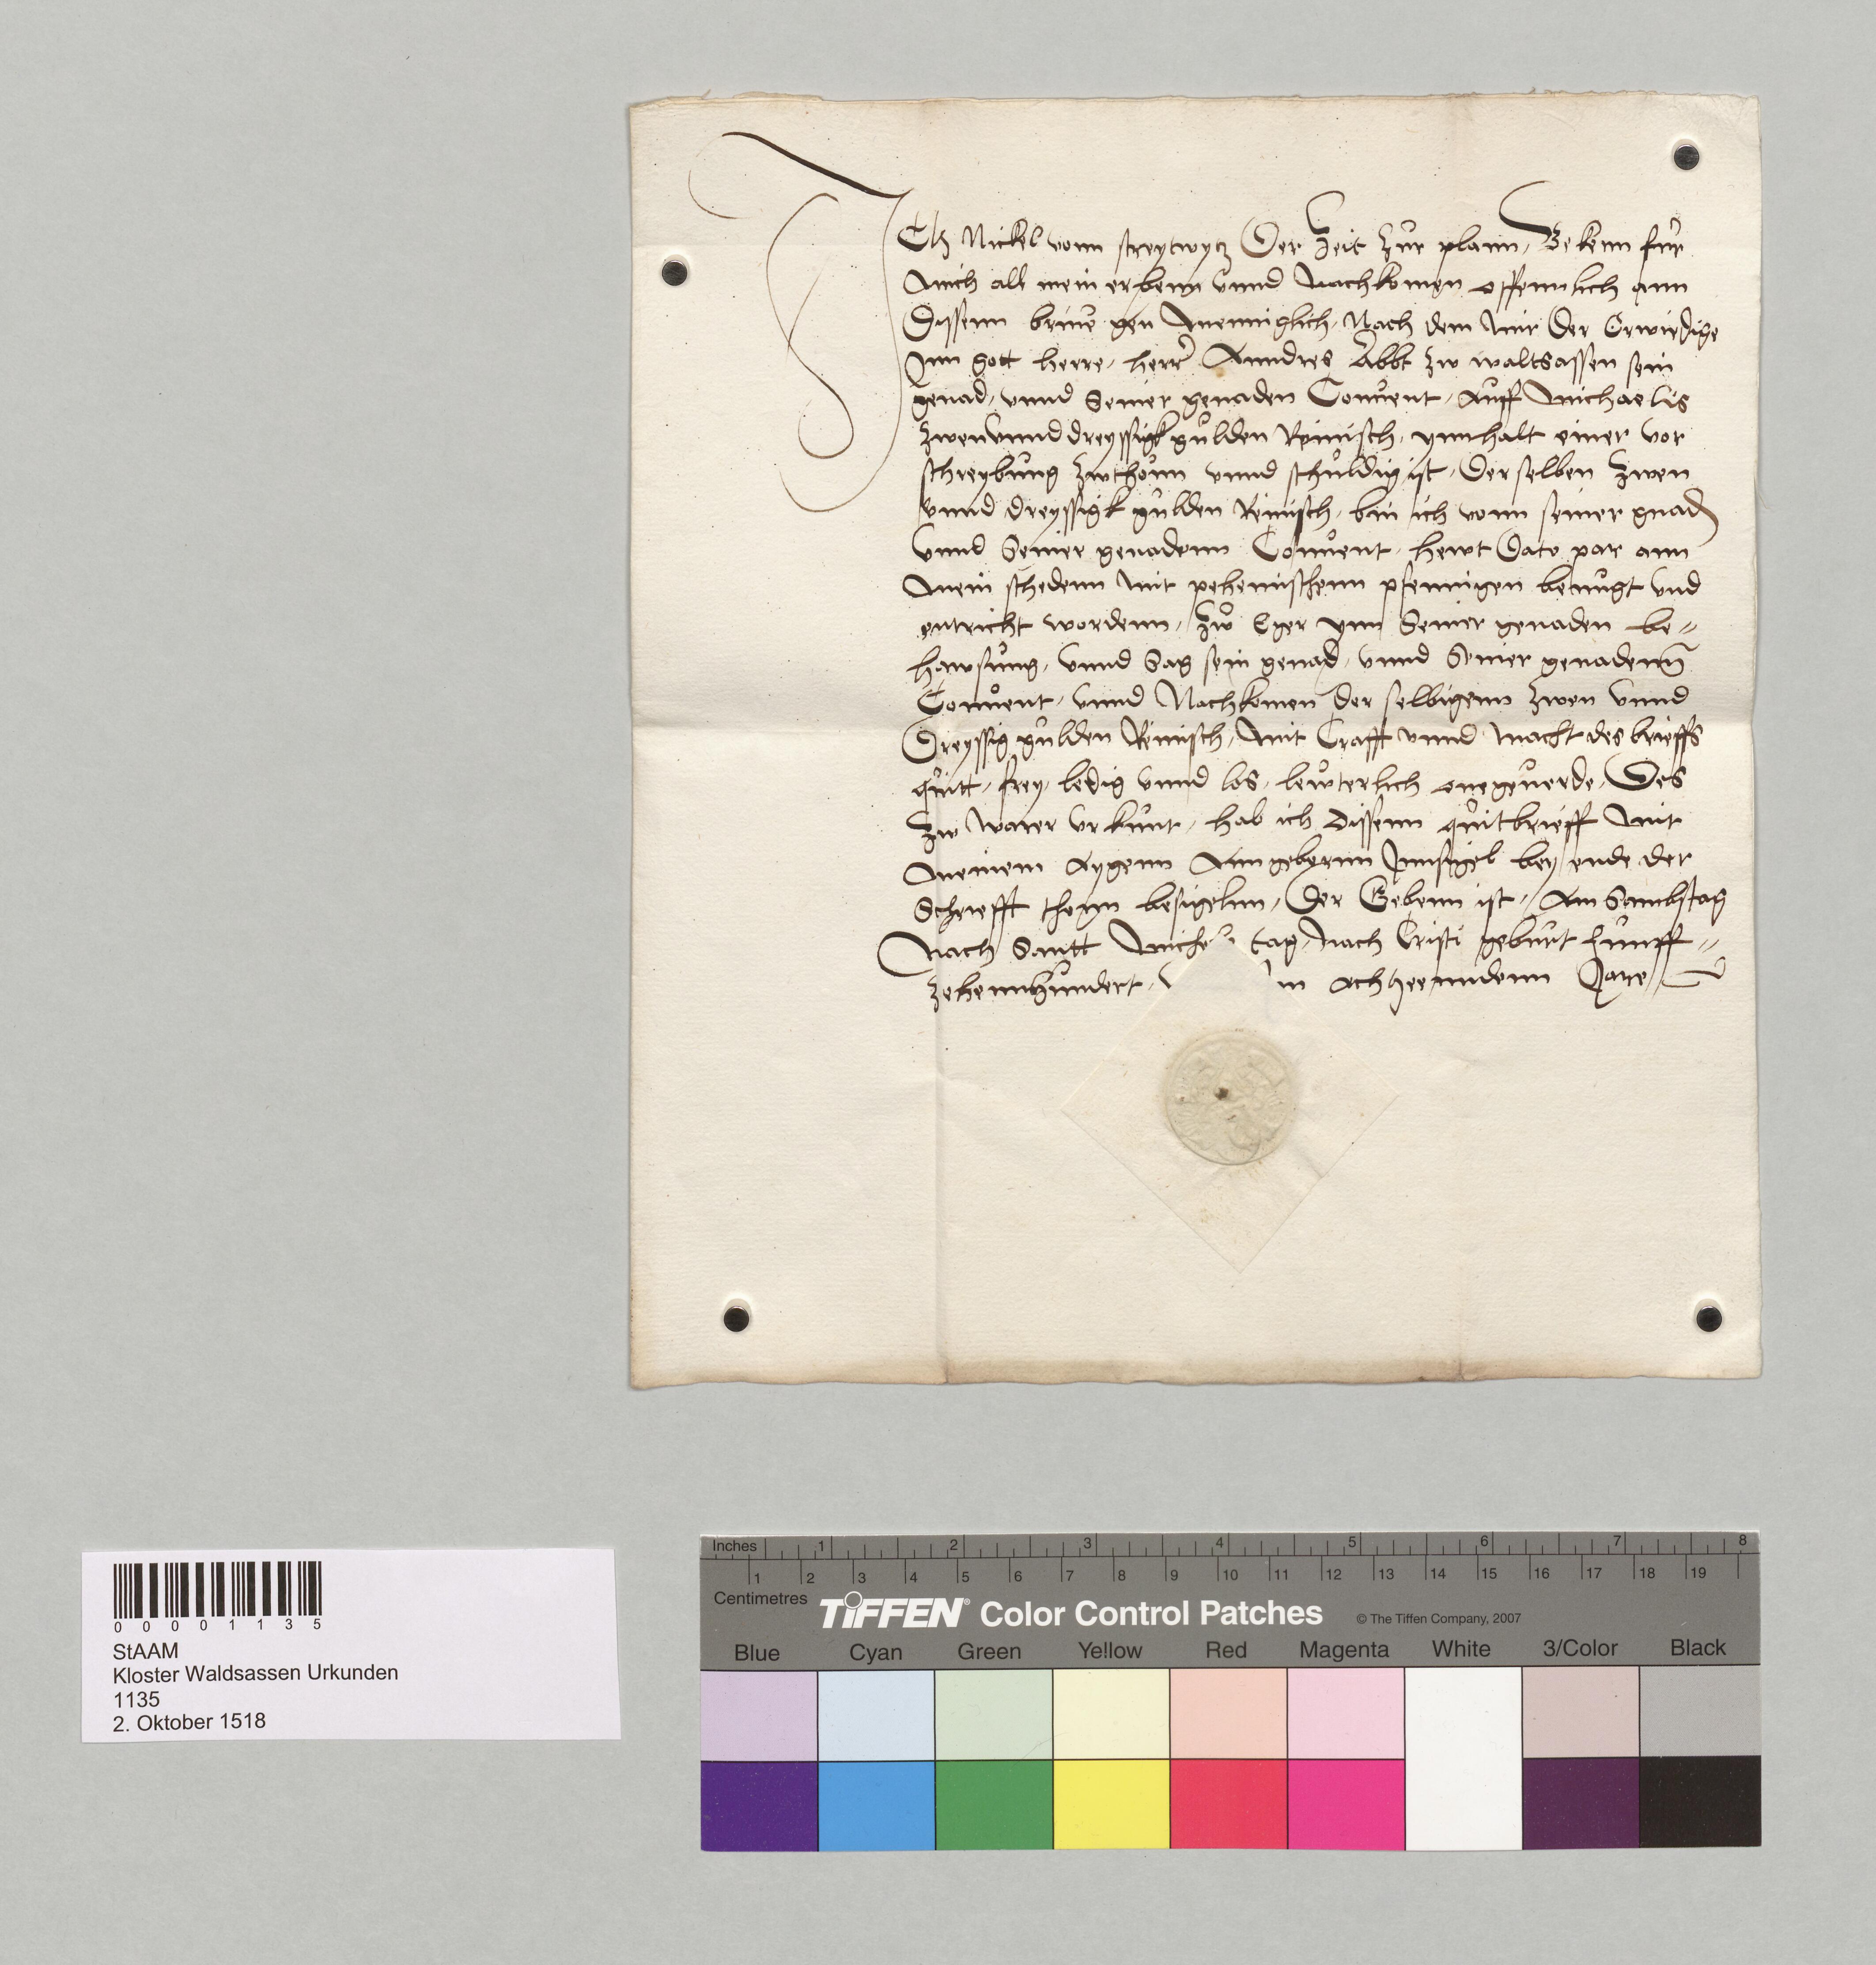 ICh Nickel vonn streytwytz Der Zeit zur plann, Bekenn fur
mich all mein erbenn vnnd Nachkomen offennlich ann
Dissenn brieue gen menniglich, Nach dem mir Der Erwirdige
Jnn gott herre, herr Anndres Abbt zw waltsassen sein
genad, vnnd Seiner genaden Conuent, Auff Michaelis
zwenvnnddreyssigk gulden Reinisch, ynnhalt einer vor
schreybung zwthonn vnnd schuldig ist, Der selben zwen
vnnd dreyssigk gulden Reinisch, bin ich vonn seiner gnad
vnnd Seiner genadenn Conuent, hewt Dato par ann
mein schedenn mit pehemischenn pfennigen benugt vnd
entricht wordenn, Zw Eger ynn Seiner genaden be=
hawsung, vnnd Sag sein genad, vnnd Seiner genadenn
Conuent, vnnd Nachkomen der selbigenn zwen vnnd
Dreyssig gulden Reinisch, mit Crafft vnnd macht des brieffs
quitt, frey, ledig vnnd los, lewterlich onegeuerde, Des
zw warer vrkunt, hab ich dissenn quitbrieff mit
meinem Aygenn Anngebornn Jnnsigel bey ende der
Schriefft thonn besigelnn, Der Gebenn ist, Am Sambstag
Nach Santt tag, Nach Cristi geburt funff=
zehennhundert, in achtzeenndenn Jare
0 0 0 0 1 1 3 5
StAAM
Kloster Waldsassen Urkunden
1135
2. Oktober 1518
Inches 1 2 3 4 5 6 7 8
1 2 3 4 5 6 7 8 9 10 11 12 13 14 15 16 17 18 19
Centimetres
TIFFEN® Color Control Patches © The Tiffen Company, 2007
Blue Cyan Green Yellow Red Magenta White 3/Color Black